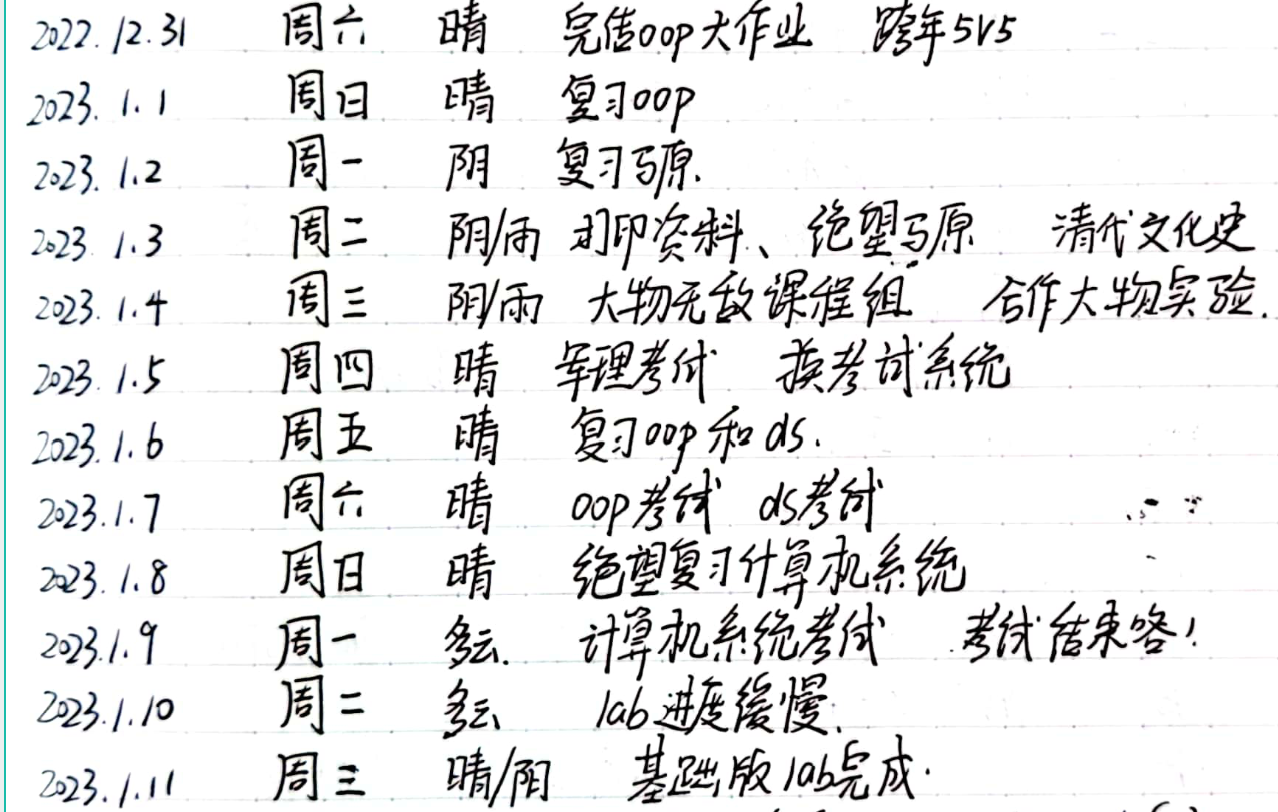 2022.12.31 周六 晴 完结oop大作业 跨年5v5
2023.1.1 周日 晴 复习oop
2023.1.2 周一 阴 复习马原.
2023.1.3 周二 阴/雨 打印资料、绝望马原 清代文化史
2023.1.4 周三 阴/雨 大物无敌课程组 合作大物实验.
2023.1.5 周四 晴 军理考试 换考试系统
2023.1.6 周五 晴 复习oop和ds.
2023.1.7 周六 晴 oop考试 ds考试
2023.1.8 周日 晴 绝望复习计算机系统
2023.1.9 周一 多云. 计算机系统考试 考试结束咯!
2023.1.10 周二 多云 lab进度缓慢.
2023.1.11 周三 晴/阴 基础版lab完成.